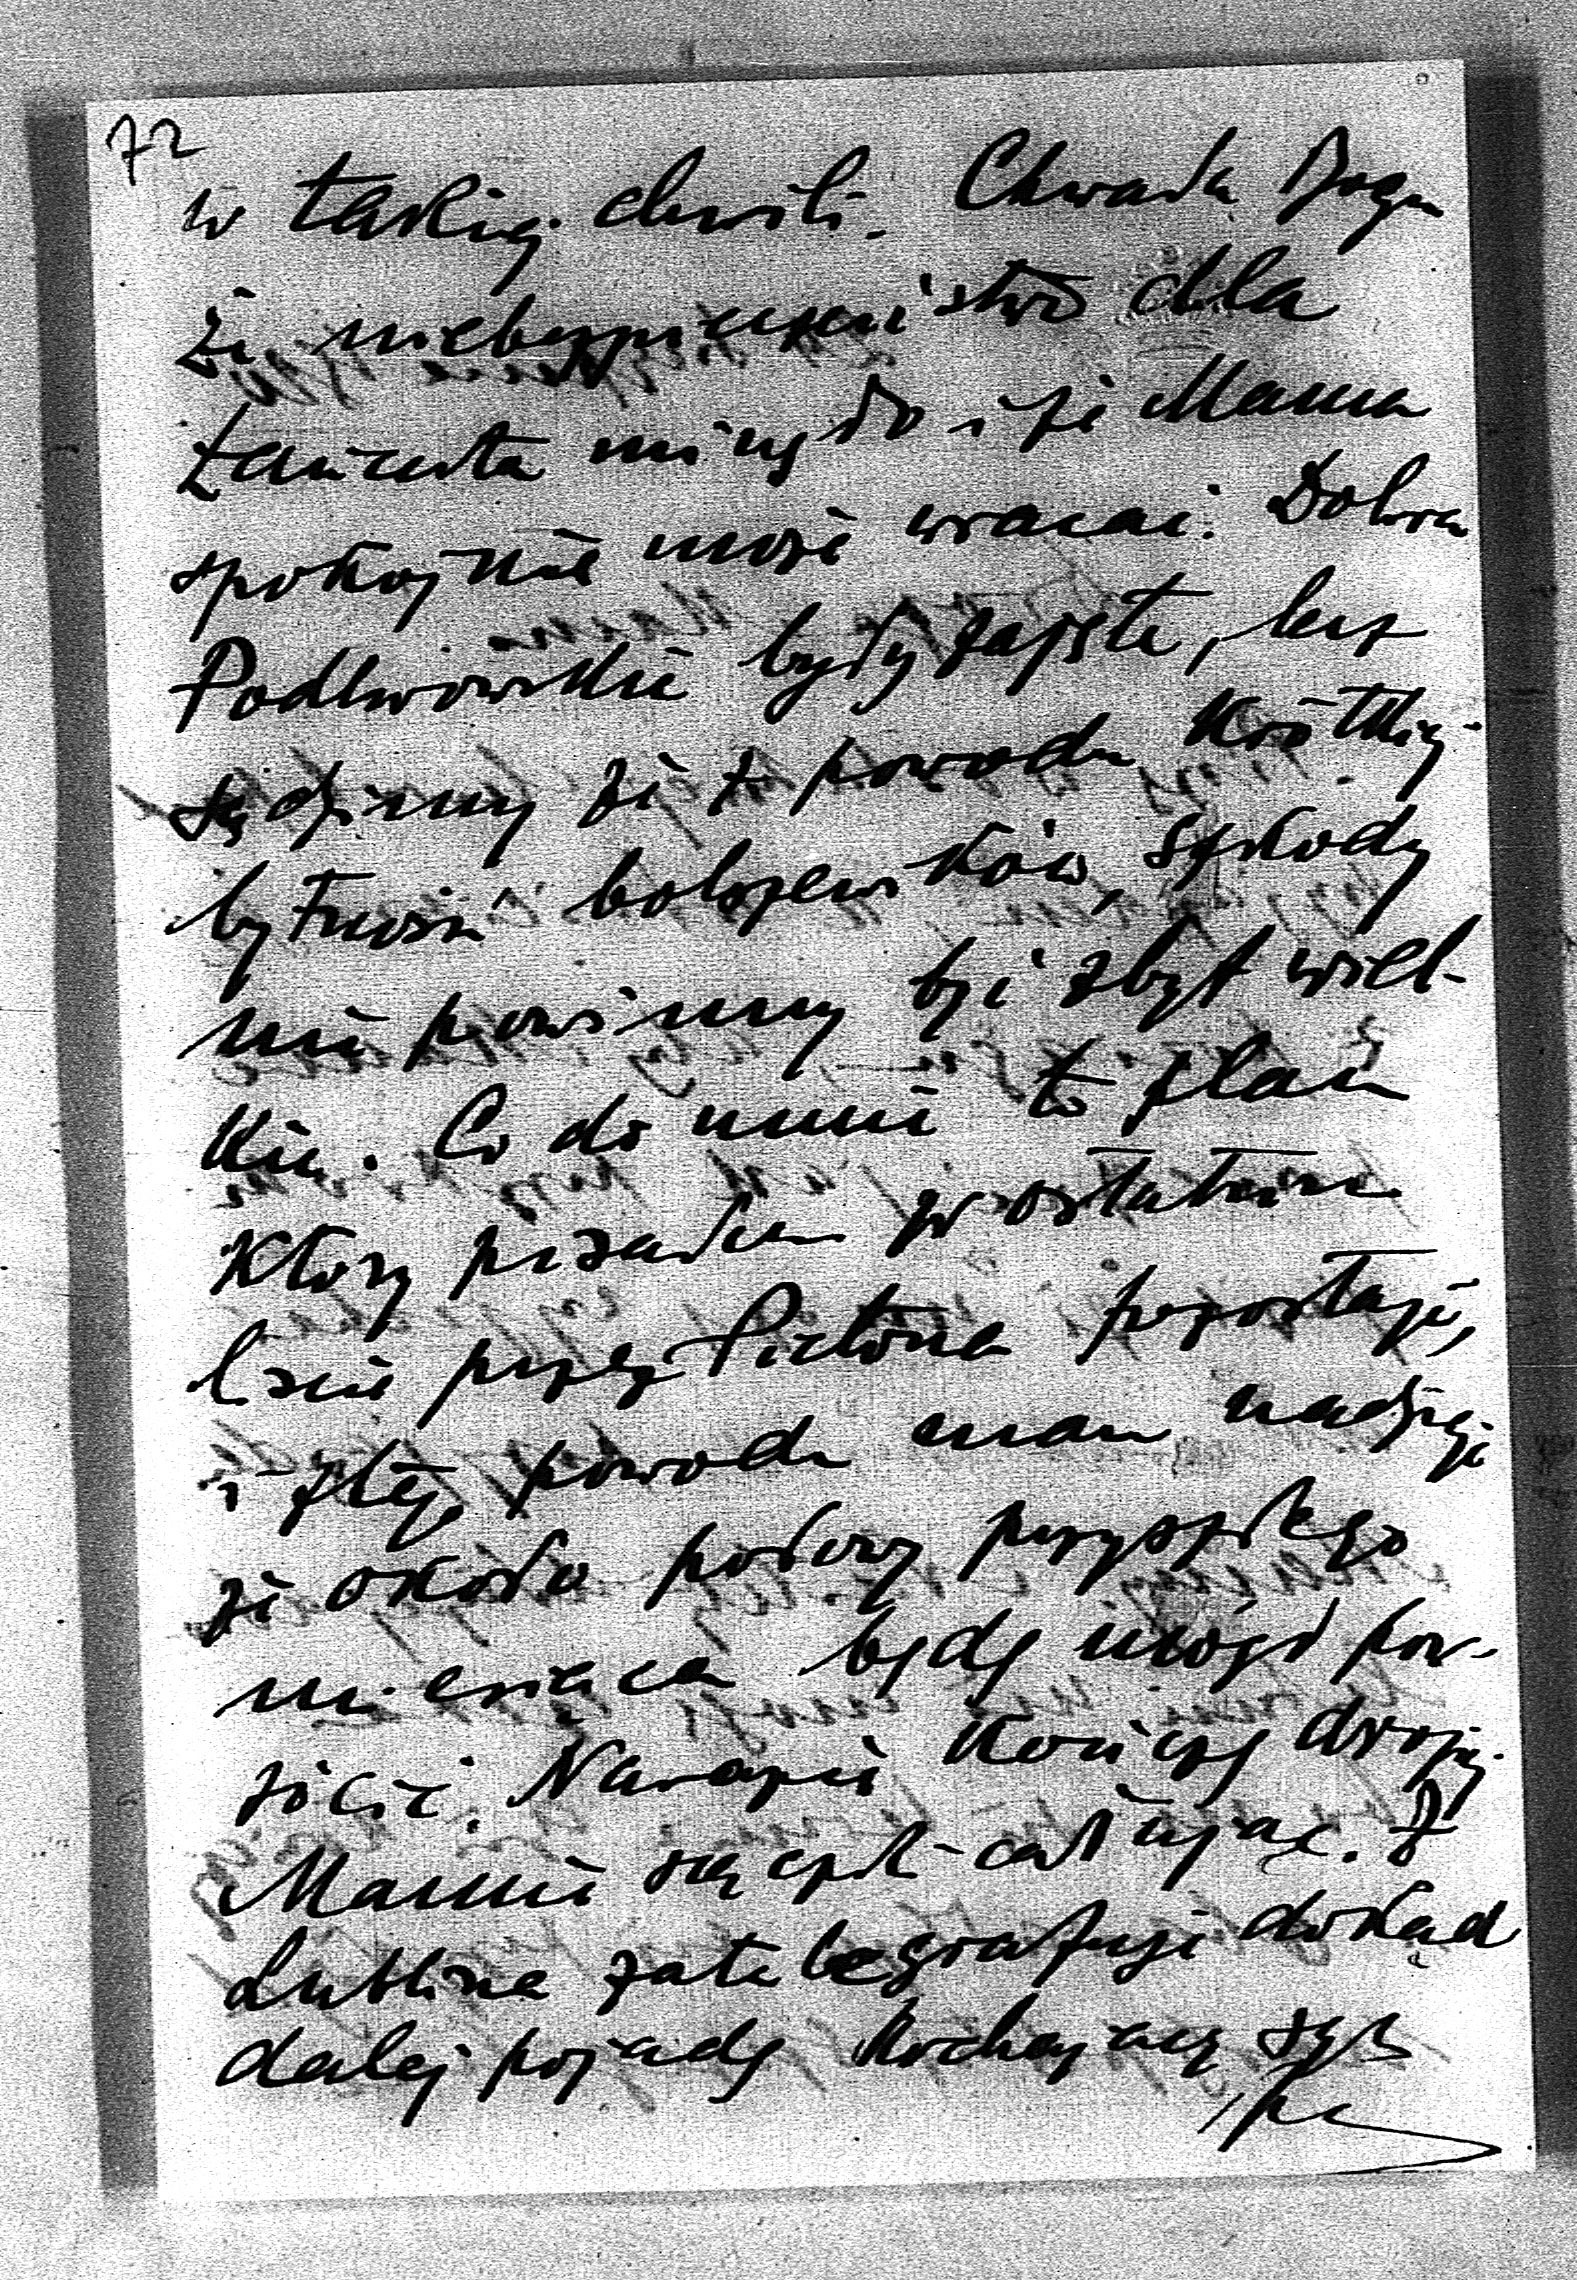 72
w takiej chwili. Chwała Bogu
że niebezpieczeństwo dla
Łańcuta minęło i że Mama
spokojnie może wracać. Dobra
Podlwowskie były zajęte, lecz
sądzimy że z powodu krótkiej
bytności bolszewików, szkody
nie powinny być zbyt wiel-
kie. Co do mnie to plan
który pisałem w ostatnim
liście przez Pictona pozostaje,
i z tego powodu mam nadzieję
że około połowy przyszłego
miesiąca będę mógł powr-
rócić. Narazie kończę drogiej
Mamie rączki całując. Z
Lublina zatelegrafuję dokąd
dalej pojadę Kochający syn